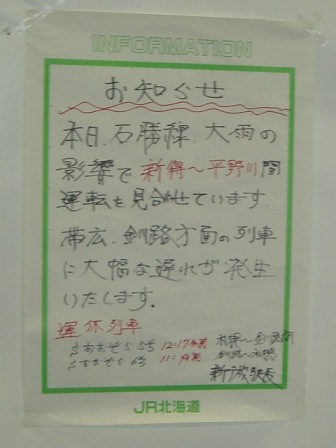 INFORMATION
お知らせ
本日、石勝線、大雨の
影響で新得～平野川間
運転を見合せています。
帯広、釧路方面の列車
に大幅な遅れが発生
いたします。
運休列車
おおぞら5号 12:17発 札幌～釧路
おおぞら6号 釧路～札幌
駅長
JR北海道